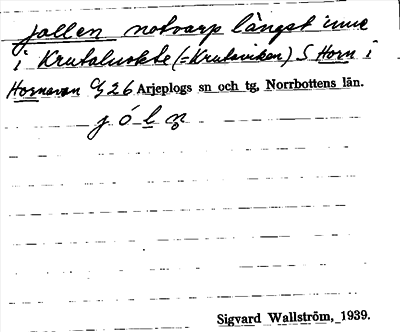 jallen notvarp längst inne
i Krutaluokte (=Krutaviken) S Horn i
Hornavan G 26 Arjeplogs sn och tg, Norrbottens län.
j ó l n̥
Sigvard Wallström, 1939.